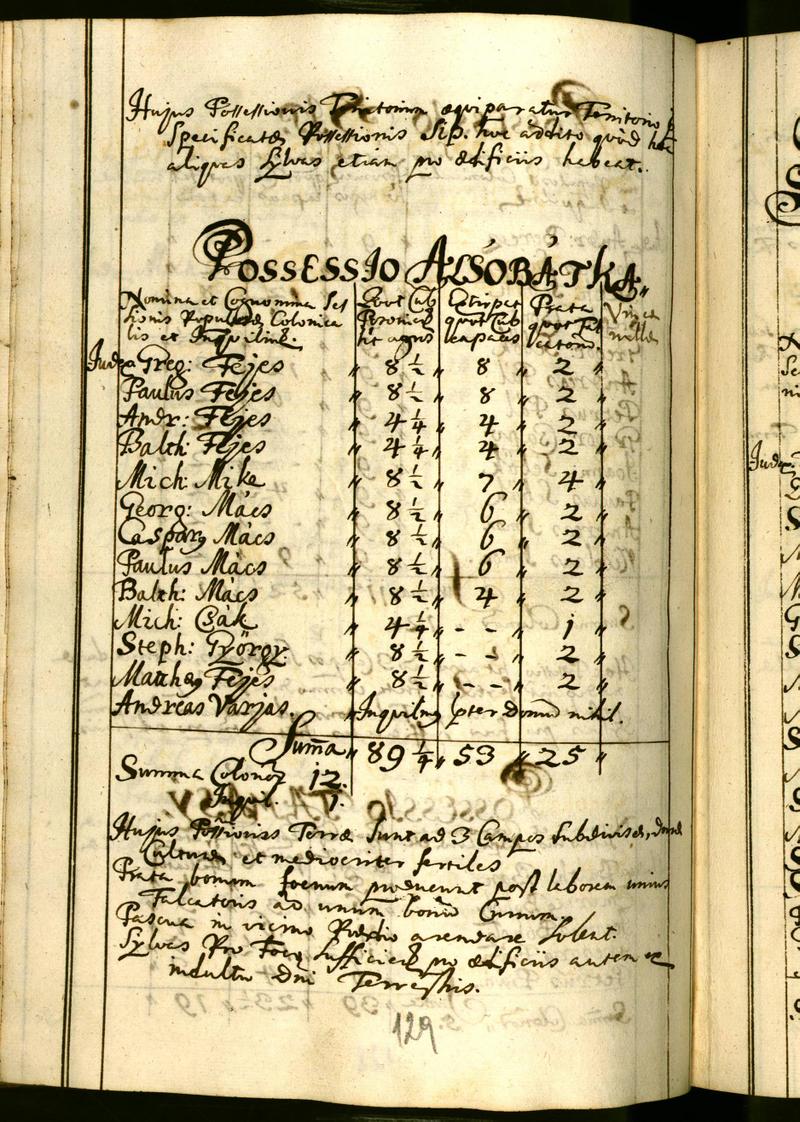 Hujus Possessionis Territorium æquiparatur Territorio
Specificatæ Possessionis Sip. hoc addito quòd hæc
aliquas Sylvas etiam pro ædificiis habeat.
POSSESSIO ALSÓBÁTKA
Nomina et Cognomina Ses Quot Cub Extirpat Prata Vinea
sionis Populosæ Colonica quot Cub quot Fal nullæ
lis et Inquilinæ. sit agros capaces catorũ
Judex Greg: Fejes " 8 1/2 " 8 " 2 "
Paulus Fejes " 8 1/2 " 8 " 2 "
Andr: Fejes " 4 1/4 " 4 " 2 "
Balth: Fejes " 4 1/4 " 4 " 2 "
Mich: Mike " 8 1/2 " 7 " 4 "
Georg: Mács " 8 1/2 " 6 " 2 "
Caspary Mács " 8 1/2 " 6 " 2 "
Paulus Mács " 8 1/2 " 6 " 2 "
Balth: Mács " 8 1/2 " 4 " 2 "
Mich: Csák " 4 1/4 " - - " 1 "
Steph: György " 8 1/2 " - - " 2 "
Matthæy Fejes " 8 1/2 " - - " 2 "
Andreas Varjas. " Inquiling pter Domũ nihil.
Sum̃a " 89 1/4 " 53 " 25 "
Summa Colonoꝝ 12.
Inquil. 1.
Hujus Possionis Terræ sunt ad 3 Campos subdivisæ,
Culturæ et mediocriter fertiles
Prata bonum foenum producunt post laborem unius
Falcatoris ad unum bonũ Currum
Pascua in vicino Prædio arendare solent.
Sylvas Pro Foco sufficien pro ædificiis autem ex
indultu Dñi Terrestris.
129
Jude